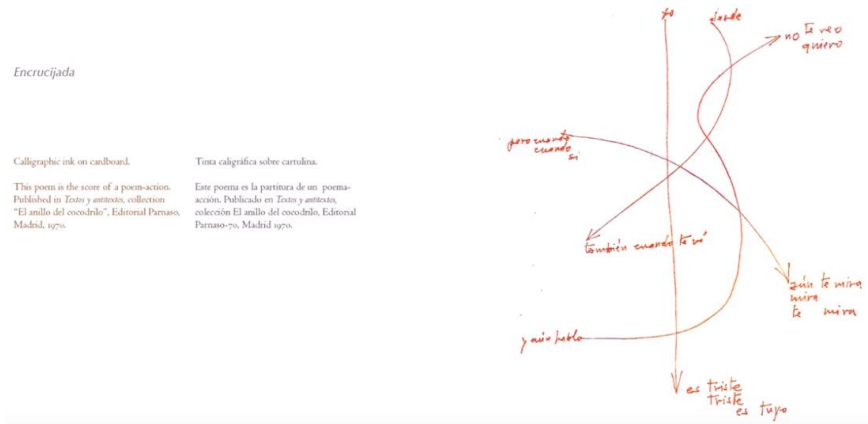 Encrucijada
Calligraphic ink on cardboard.
This poem is the score of a poem-action.
Published in Textos y antitextos, collection
"El anillo del cocodrilo", Editorial Parnaso,
Madrid, 1970.
Tinta caligráfica sobre cartulina.
Este poema es la partitura de un poema-
acción. Publicado en Textos y antitextos,
colección El anillo del cocodrilo, Editorial
Parnaso-70, Madrid 1970.
yo
desde
no te veo
quiero
pero cuando
cuando
si
también cuando te vé
aún te mira
mira
te mira
y aún hablo
es triste
Triste
es tuyo